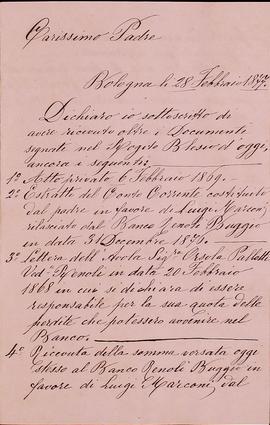 Carissimo Padre
Bologna li 28 Febbraio 1877.
Dichiaro io sottoscritto di
avere ricevuto oltre i Documenti
segnati nel d'oggi,
ancora i seguenti:
1° Atto privato 6 Febbraio 1869.
2° Estratto del Conto Corrente costituito
dal padre in favore di Luigi Marconi,
rilasciato dal Banco Renoli Buggio
in data 31 Decembre 1874.
3° Lettera dell'Avola Sigra Orsola
Veda Renoli in data 20 Febbraio
1868 in cui si dichiara di essere
responsabile per la sua quota delle
perdite che potessero avvenire nel
Banco.
4° Ricevuta della somma versata oggi
stesso al Banco Renoli Buggio in
favore di Luigi Marconi, dal